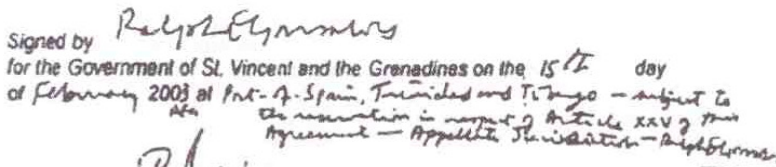 Signed by Ralph E Gonsalves
for the Government of St. Vincent and the Grenadines on the 15th day
of February 2003 at Port-of-Spain, Trinidad and Tobago — subject to
the reservation in respect of Article XXV of this
Agreement — Appellate Jurisdiction — Ralph E Gonsalves